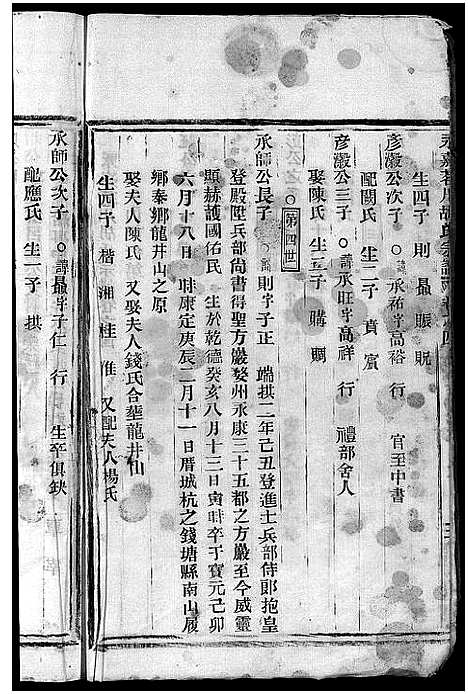 生四子 則 最 賑 賍
彦澂公次子 ○諱永祐字高裕 行 官至中書
配關氏 生二子 賁 賔
彦澂公三子 ○諱永旺字高祥 行 禮部舍人
娶陳氏 生五子 購 賙
○第四世
永師公長子 ○諱則字子正 端拱二年己丑登進士兵部侍郎抱皇
登殿陞兵部尚書得聖方巖婺州永康三十五都之方巖至今威靈
顯赫護國佑民 生於乾德癸亥八月十三日寅時卒于寶元己卯
六月十八日 時康定庚辰二月十一日厝城杭之錢塘縣南山履
鄉秦鄉龍井山之原
娶夫人陳氏 又娶夫人錢氏合塟龍井山
生四子 楷 湘 桂 淮 又配夫人楊氏
永師公次子 ○諱最字子仁 行 生卒俱缺
配應氏 生一子 拱